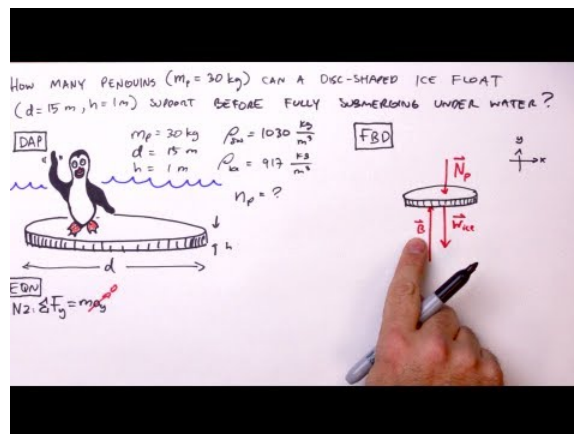 HOW MANY PENGUINS (mₚ = 30 kg) CAN A DISC-SHAPED ICE FLOAT
(d = 15 m, h = 1 m) SUPPORT BEFORE FULLY SUBMERGING UNDER WATER?
DAP
mₚ = 30 kg
d = 15 m
h = 1 m
ρsw = 1030 kg/m³
ρice = 917 kg/m³
nₚ = ?
h
d
EQN
N2: ΣFy = may→0
FBD
y
x
N⃗p
B⃗
W⃗ice